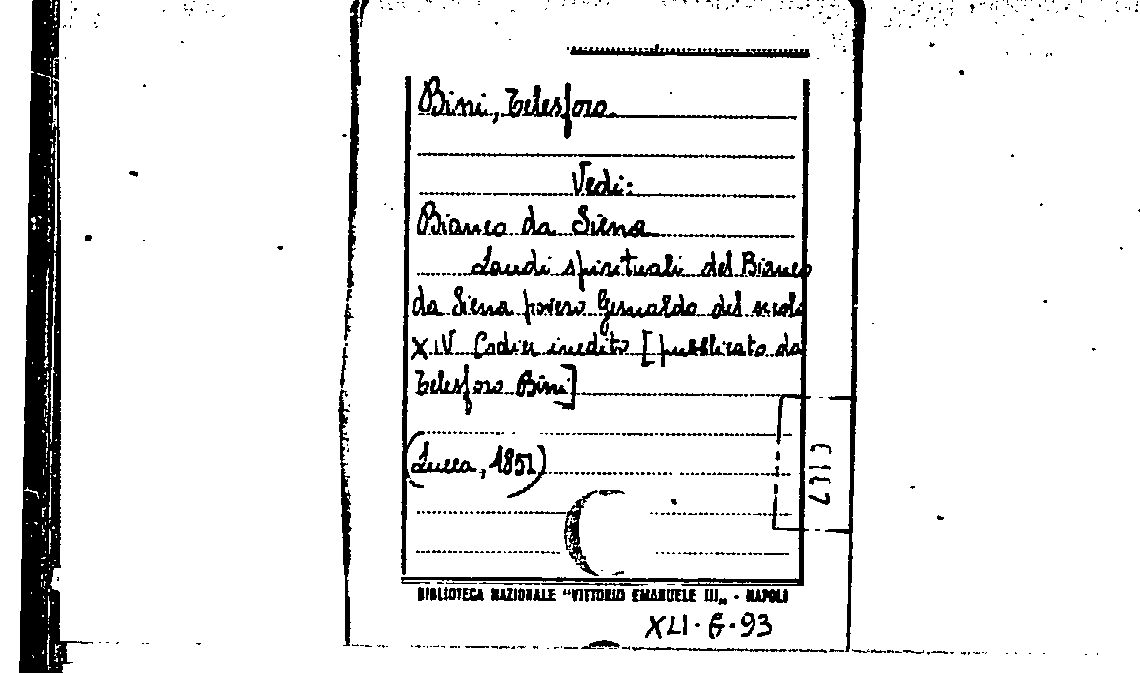 Bini, Telesforo.
Vedi:
Bianco da Siena
Laudi spirituali del Bianco
da Siena povero Gesualdo del secolo
XIV Codice inedito [pubblicato da
Telesforo Bini]
(Lucca, 1851)
BIBLIOTECA NAZIONALE "VITTORIO EMANUELE III„ - NAPOLI
XLI·G·93